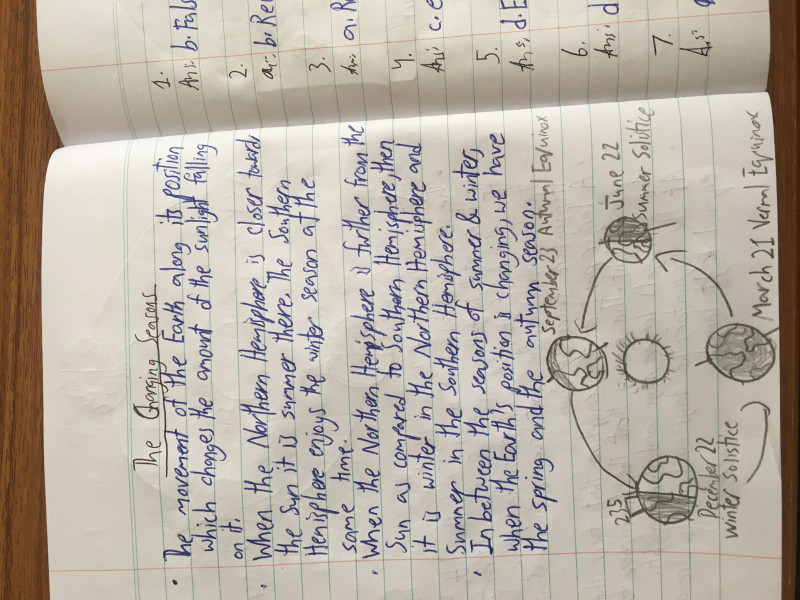 The Changing Seasons
• The movement of the Earth along its position
which changes the amount of the sunlight falling
on it.
• When the Northern Hemisphere is closer towards
the sun it is summer there. The Southern
Hemisphere enjoys the winter season at the
same time.
• When the Northern Hemisphere is further from the
Sun as compared to Southern Hemisphere, then
it is winter in the Northern Hemisphere and
Summer in the Southern Hemisphere.
• In between the seasons of summer & winter,
when the Earth's position is changing, we have
the spring and the autumn season.
September 23 Autumnal Equinox
June 22
Summer Solstice
23.5
December 22
winter solistice
March 21 Vernal Equinox
1.
Ans: b. Fals
2.
Ans: b. Re
3.
Ans: a. R
4.
Ans: c. e
5.
Ans: d. E
6.
Ans: d
7.
Ans: